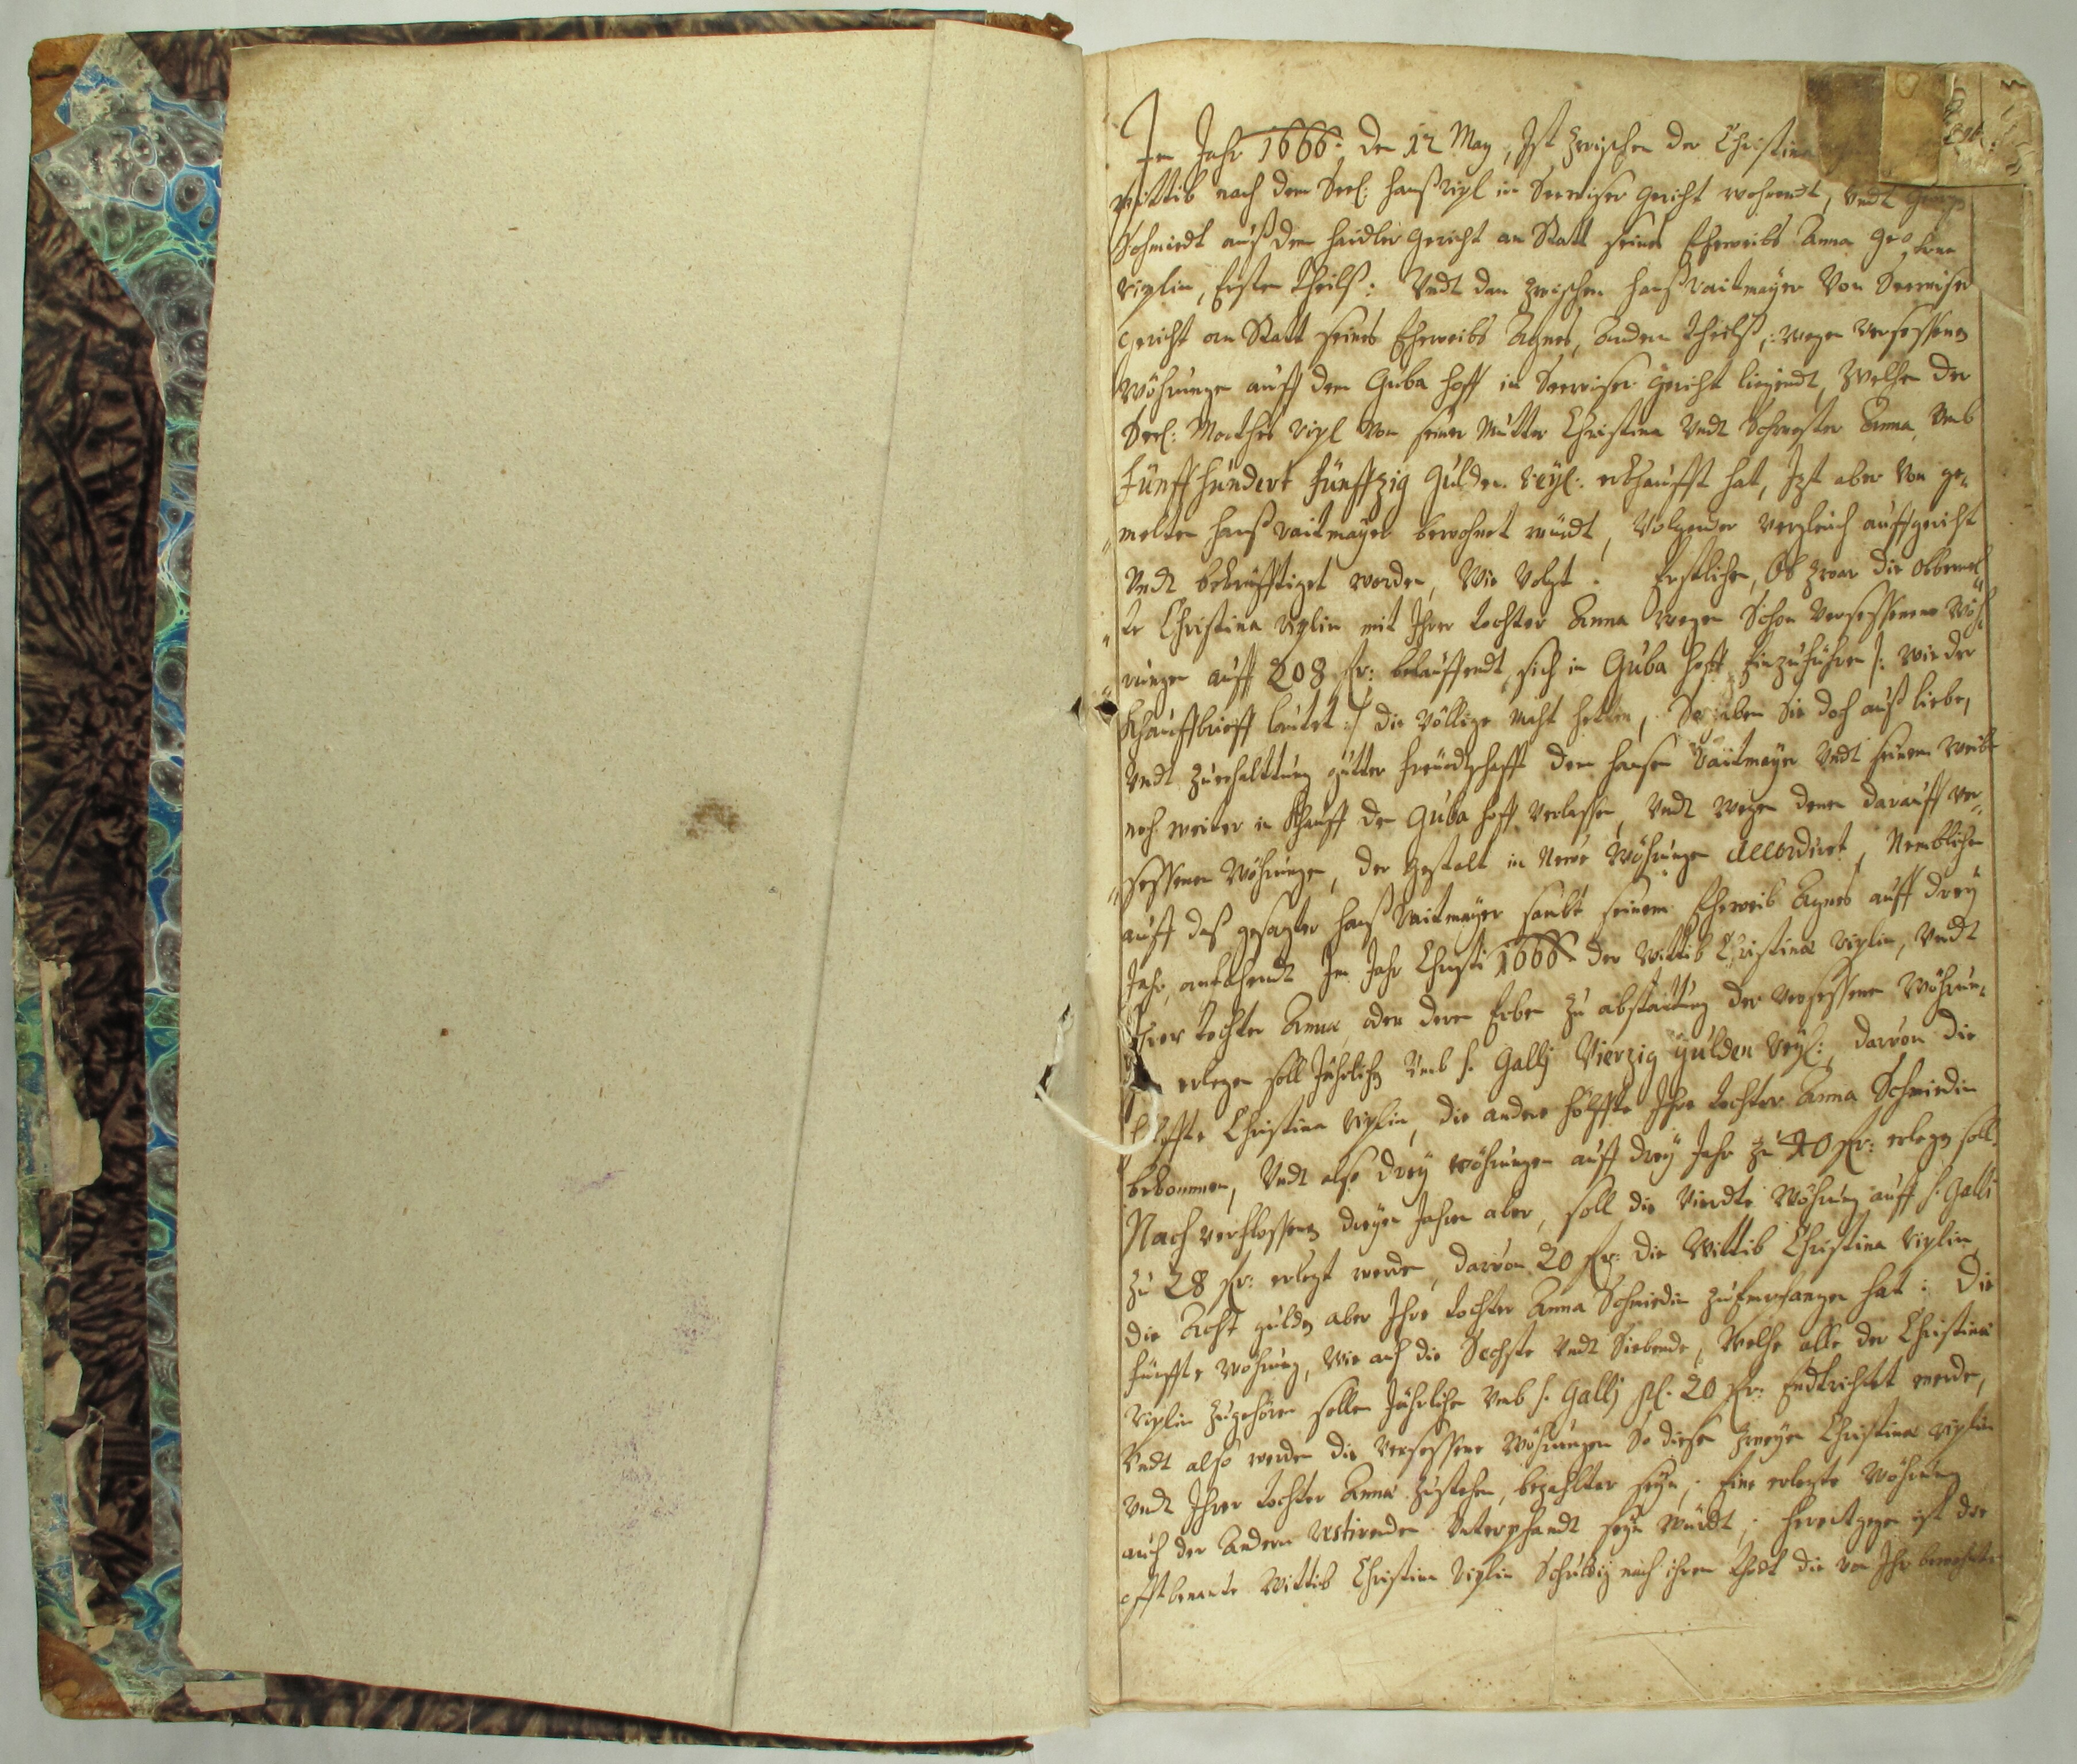 Im Jahr 1666. den 12 May, Ist zwischen der Christina
wittib nach dem Seel: Hanß Vipl in Seewiser Gericht wohnendt, Undt Georg
Schmiedt auß dem Haidler Gericht an Statt seines Eheweibs Anna gebohrne
Viplin, Ersten theilß: Undt dan zwischen Hanß Vaitmayer Von Seewiser
Gericht an Statt seines Eheweibs Agnes, Andern theilß, wegen Versessenen
Wöhrungen auff dem Guba Hoff in Seewiser Gericht liegendt, Welchen der
Seel: Mathes Vipl Von seiner Mutter Christina Undt Schwester Anna, Umb
Fünff hundert Fünffzig Gulden Reyl: erkhaufft hat, Izt aber Von ge-
melten Hanß Vaitmayer bewohnet würdt, Volgender Vergleich auffgericht
Undt bekräfftiget worden, Wie Volgt: Erstlichen, Ob zwar die Obbemel-
te Christina Viplin mit Ihrer tochter Anna wegen Schon Versessenen Wöh-
rungen auff 208 fr: belauffendt, sich in Guba Hoff Einzuführen /: Wie der
Khauffbrieff lautet :/ die Völlige Macht hetten, So haben Sie doch auß liebe,
Undt zuerhalttung gutter freündtschafft dem Hansen Vaitmayer Undt seinem weibe
noch weiter in Khauff den Guba Hoff Verlassen, Undt wegen denen darauff Ver-
sessenen Wöhrungen, der gestalt in Newe Wöhrungen accordiret, Nemblichen
auff das gesagter Hanß Vaitmayer sambt seinem Eheweib Agnes auff drey
Jahr, anfahendt Im Jahr Christi 1666. der Wittib Christina Viplin, Undt
Ihrer tochter Anna, oder deren Erben zu abstattung der Versessenen Wöhrun-
erlegen soll Jährlichen Umb S. Gallj Vierzig gulden Reyl: darvon die
helffte Christina Viplin, die andere hölffte Ihre tochter Anna Schmiedin
bekommen, Undt also drey Wöhrungen auff drey Jahr zu 40 fr: erlegen soll.
Nach verflossenen dreyen Jahren aber, soll die Vierdte Wöhrung auff S. Galli
zu 28 fr: erlegt werden, darvon 20 fr: die Wittib Christina Viplin
die Acht gulden aber Ihre tochter Anna Schmiedin zu Empfangen hat: Die
fünffte Wöhrung, Wie auch die Sechste Undt Siebende, Welche alle der Christina
Viplin zugehören sollen Jährlichen Umb S. Gallj pl. 20 fr: Endtrichtet werden,
Undt also werden die Versessene Wöhrungen So diesen zweyen Christina Viplin
Undt Ihrer tochter Anna zustehen, bezahlter seyn, Eine erlegte Wöhrung
auch der Andern restirenden Unterpfandt seyn würdt; hereitgegen ist die
offtbenante Wittib Christina Viplin Schuldig nach ihrem Thodt die Von Ihr bewohnte